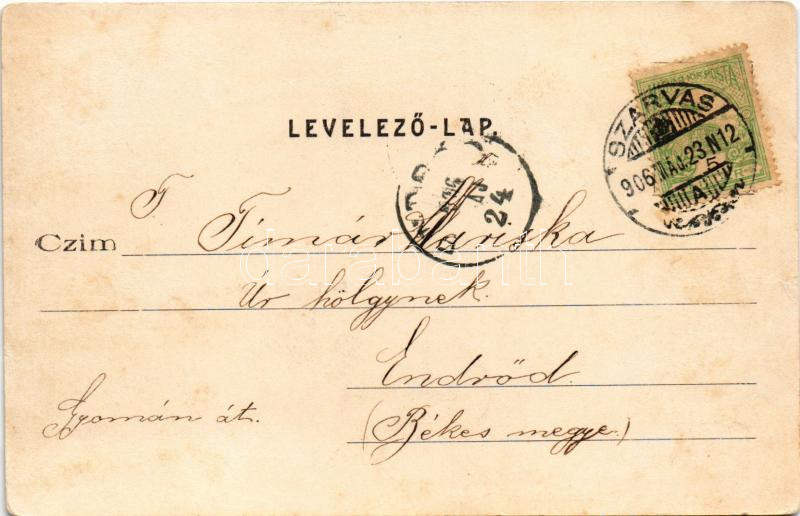 LEVELEZŐ-LAP.
SZARVAS
906 MÁJ. 23 N12
5
906
MÁJ
24
T.
Czim Tímár Mariska
Úr hölgynek.
Endrőd.
Gyomán át.
(Békes megye.)
darabanth